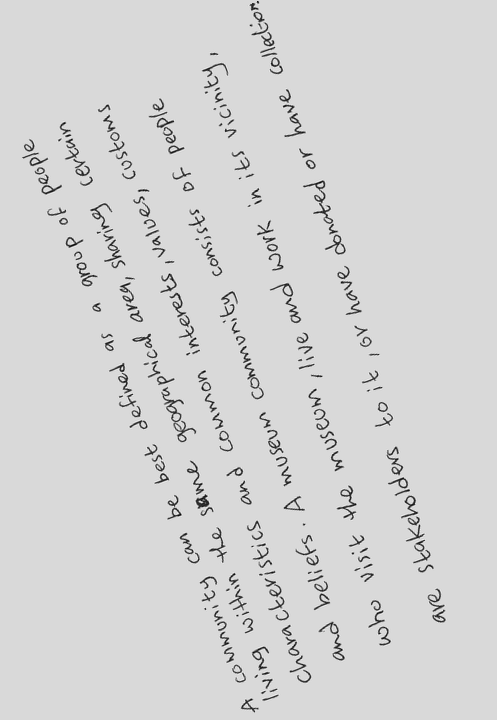 A community can be best defined as a group of people
living within the same geographical area, sharing certain
characteristics and common interests, values, customs
and beliefs. A museum community consists of people
who visit the museum, live and work in its vicinity,
are stakeholders to it, or have donated or have collection.